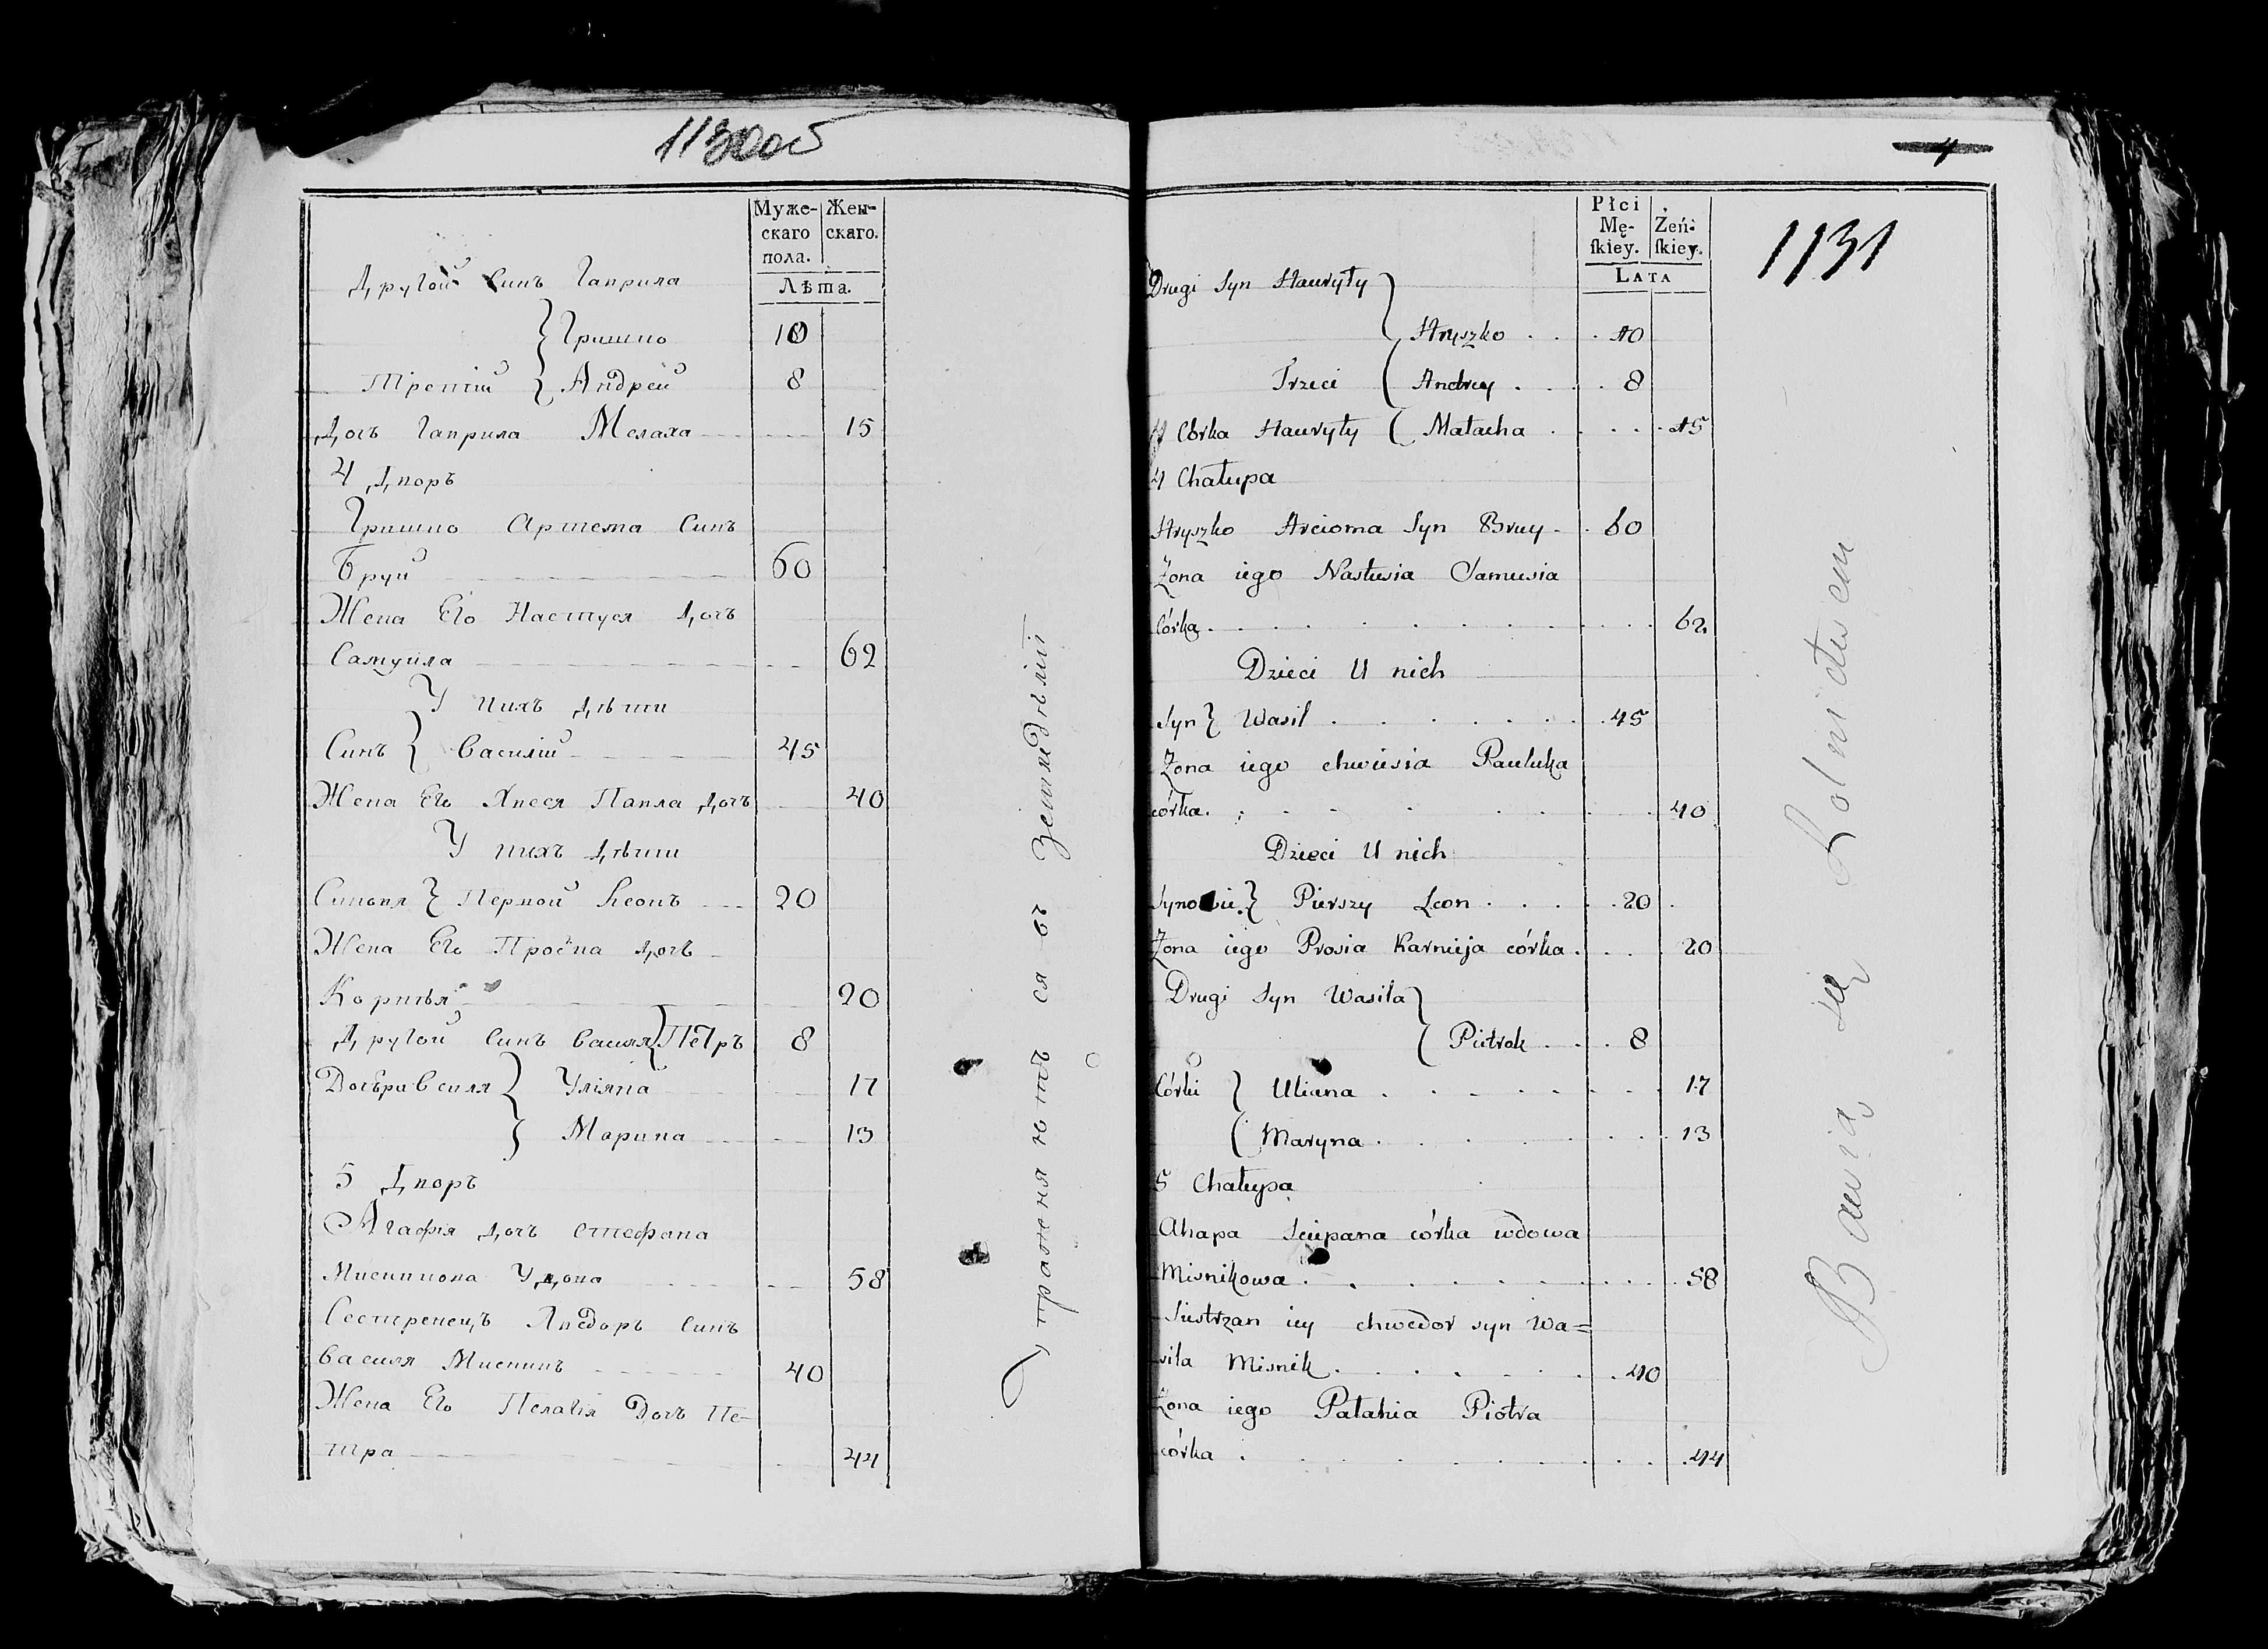 1130об
Муже- Жен-
скаго скаго.
пола.
Лѣта.
Другой Синъ Гаврила
Гришко 10
Третій Андрей 8
Дочъ Гаврила Мелаха 15
4 Дворъ
Гришко Артема Синъ
Бруй 60
Жена Его Настуся дочъ
Самуйла 62
У нихъ дѣти
Синъ Василій 45
Жена Его Хвеся Павла дочъ 40
У нихъ дѣти
Синовя Первой Леонъ 20
Жена Его Прося дочъ
Корнѣя 20
Другой Синъ Василя Петръ 8
Уліяна 17
Марина 13
5 Дворъ
Агафія дочъ Стефана
Мисникова Удова 58
Сестренецъ Хведоръ Синъ
Василя Мисникъ 40
Жена Его Пелагія Дочъ Пе-
тра 44
упражняютъ ся въ
4
1131
Płci
Mę- Żeń-
skiey. skiey.
LATA
Drugi Syn Hauryły
Hryszko 10
Trzeci Andrey 8
Córka Hauryły Małacha 15
4 Chałupa
Hryszko Arcioma Syn Bruy 60
Żona iego Nastusia Samusia
Córka 62
Dzieci U nich
Syn Wasil 45
Żona iego chwiesia Pauluka
córka 40
Dzieci U nich
Synowie Pierszy Leon 20
Żona iego Prosia Karnieja córka 20
Drugi Syn Wasila
Piotrok 8
Córki Uliana 17
Maryna 13
5 Chałupa
Ahapa Sciepana córka wdowa
Misnikowa 58
Siestrzan iey chwedor syn Wa=
sila Misnik 40
Żona iego Pałahia Piotra
córka 44
Bawią się Rolnictwem